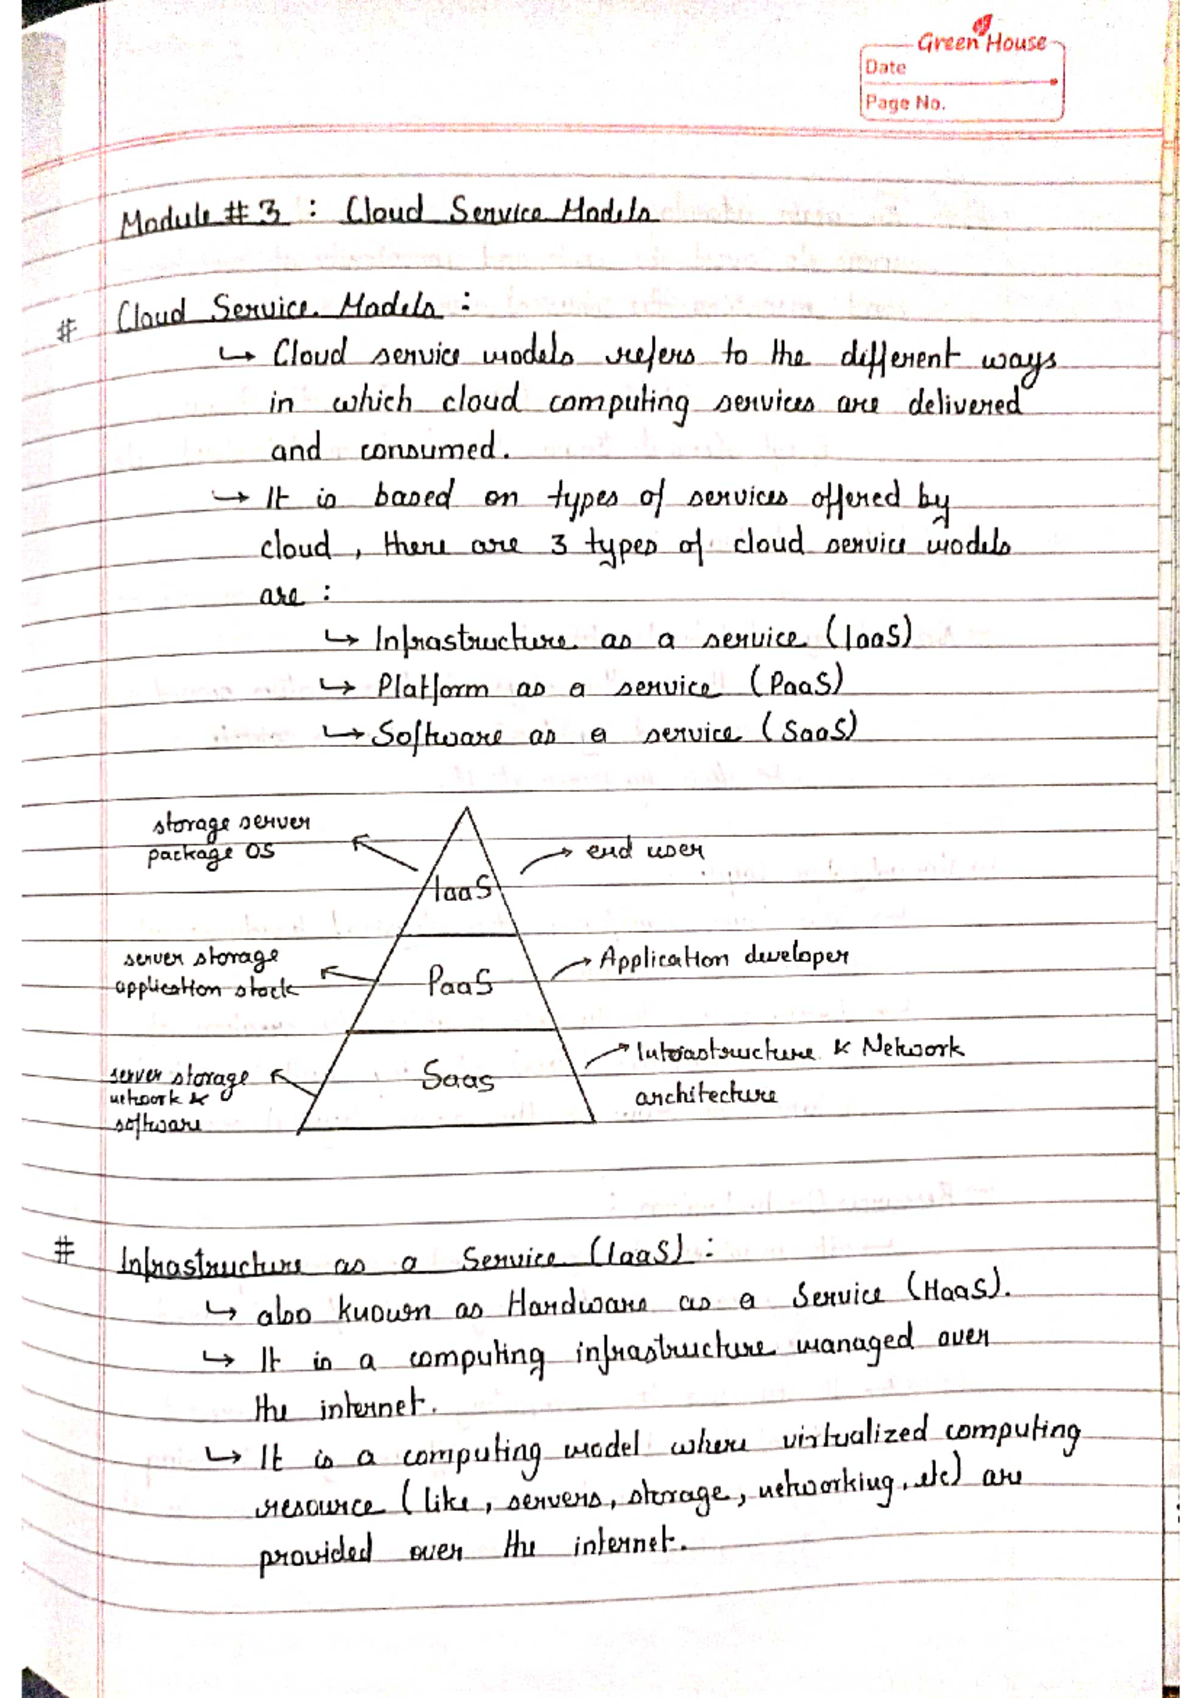 Green House
Date
Page No.
Module # 3 : Cloud Service Models
# Cloud Service Models :
↳ Cloud service models refers to the different ways
in which cloud computing services are delivered
and consumed.
↳ It is based on types of services offered by
cloud, there are 3 types of cloud service models
are :
↳ Infrastructure as a service (IaaS)
↳ Platform as a service (PaaS)
↳ Software as a service (SaaS)
storage server
package OS
IaaS
end user
server storage
application stock
PaaS
Application developer
server storage
network &
software
Saas
Infrastructure & Network
architecture
# Infrastructure as a Service (IaaS) :
↳ also known as Hardware as a Service (HaaS).
↳ It is a computing infrastructure managed over
the internet.
↳ It is a computing model where virtualized computing
resource (like, servers, storage, networking, etc) are
provided over the internet.